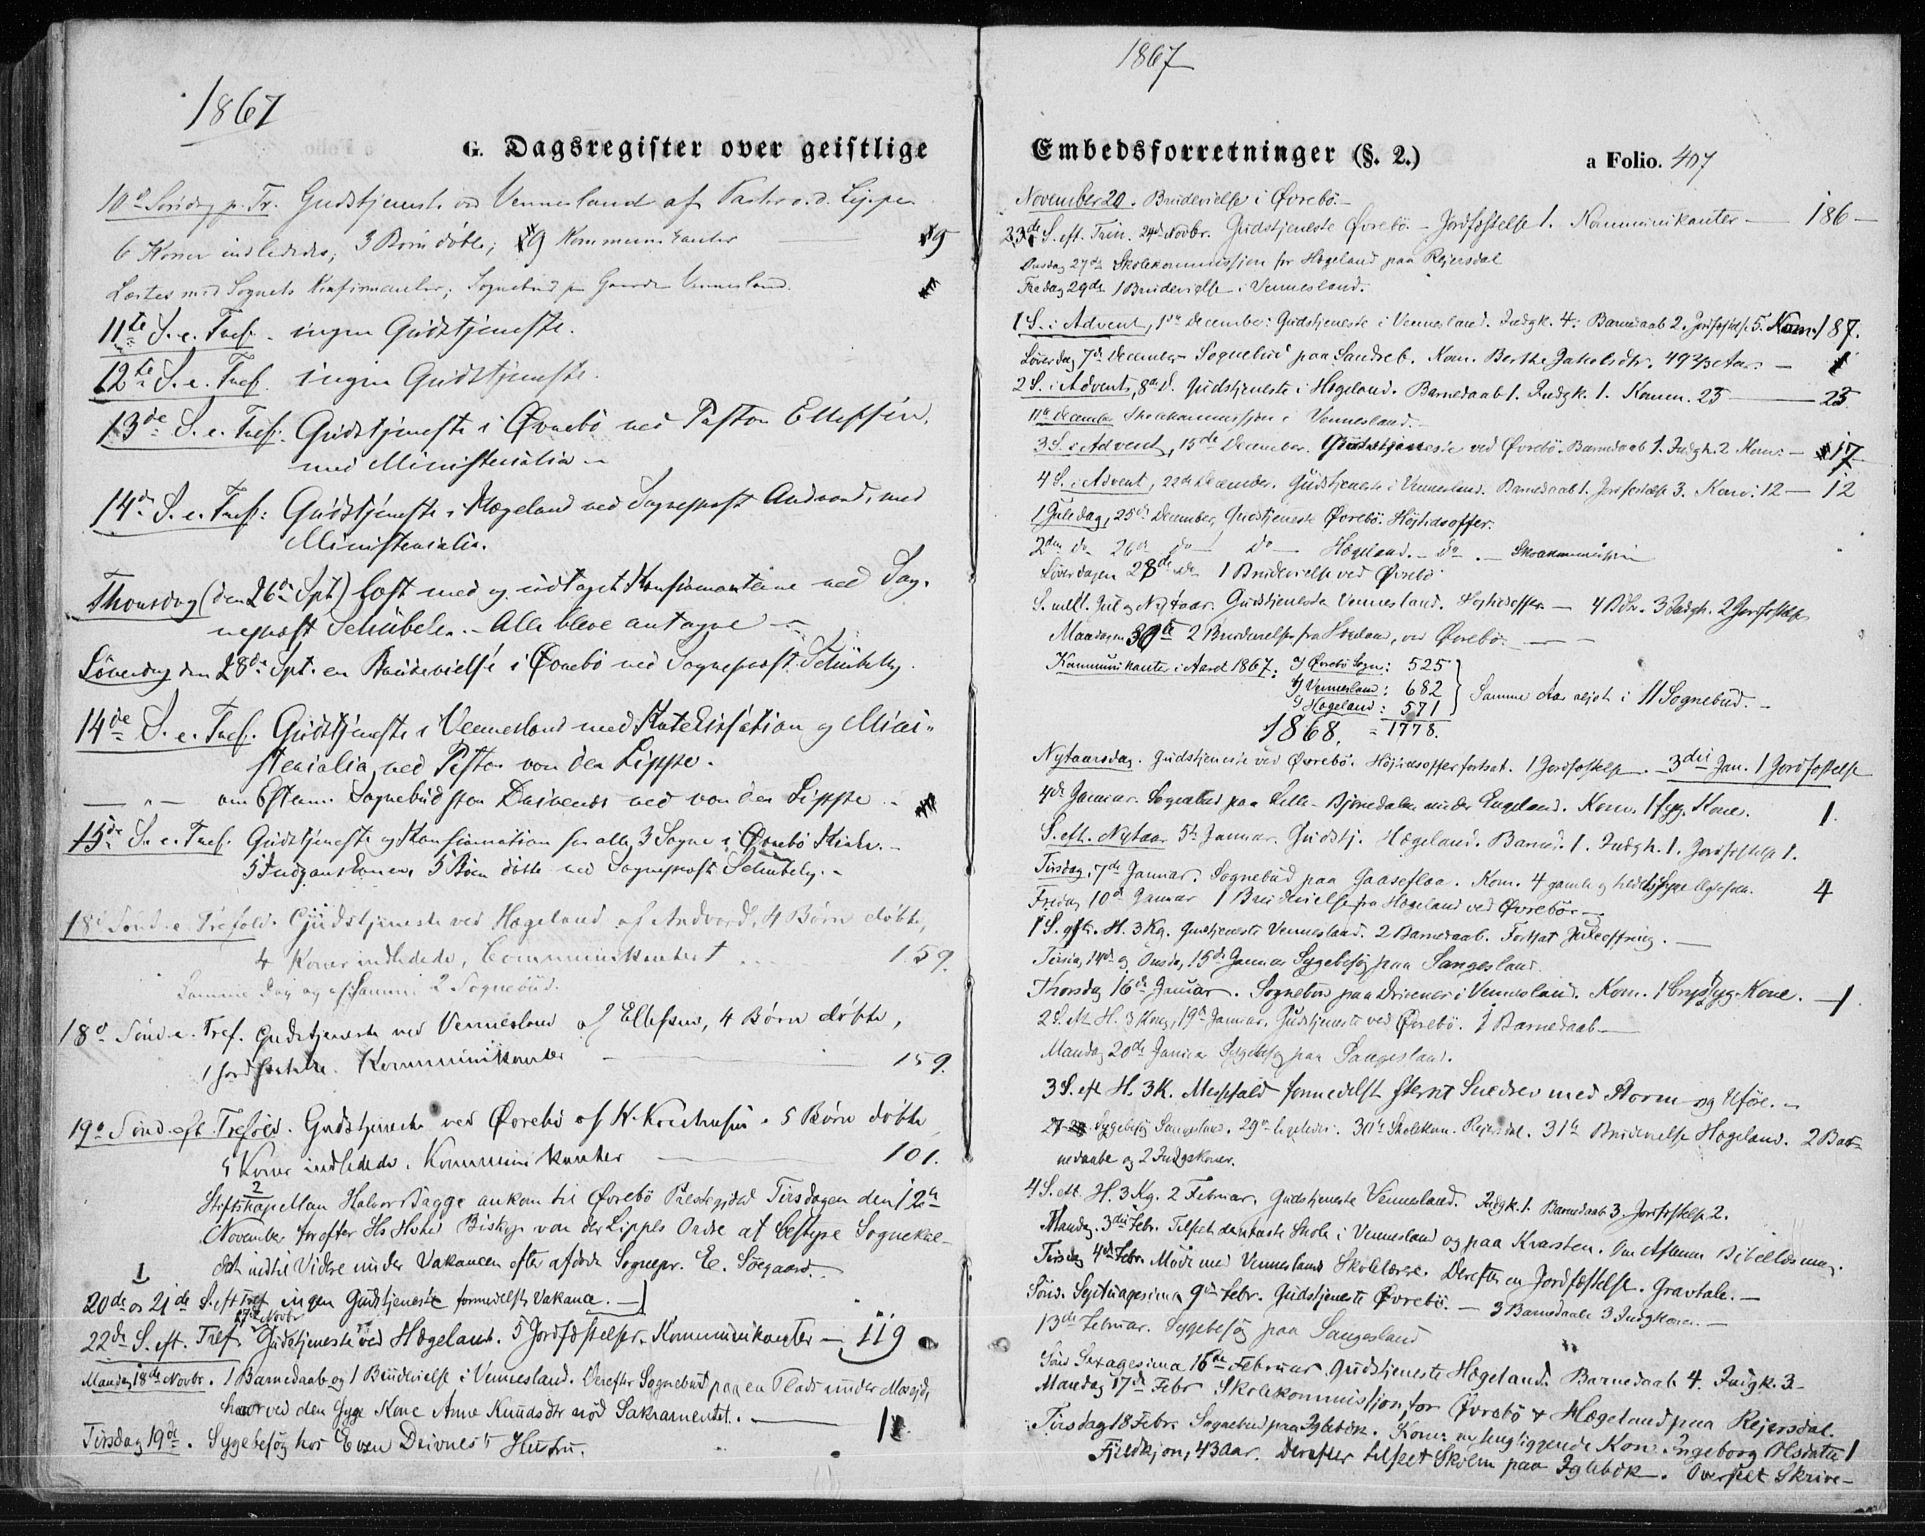 1867
G. Dagsregister over geistlige
10de Søndag p. Tr. Gudstjeneste ved Vennesland af Pastor v. d. Lippe
6 Koner indlededes, 3 Børn døbte; 9 Kommunikanter 9
Læstes med Sognets Konfirmanter; Sognebud paa Gaarden Vennesland.
11te S. e. Tref. ingen Gudstjeneste.
12te S. e. Tref. ingen Gudstjeneste.
13de S. e. Tref. Gudstjeneste i Øvrebö ved Pastor Ellefsen,
med Ministerialia
14de S. e. Tref: Gudstjeneste i Hægeland ved Sognepræst Andvord, med
Ministerialia.
Thorsdag (den 26de Spt) læst med og udtaget Konfirmanterne ved Sog-
nepræst Schübeler. - Alle bleve antagne
Löverdag den 28de Spt. en Brudevielse i Øvrebö ved Sognepræst Schübeler.
14de S. e. Tref. Gudstjeneste i Vennesland med Katekisation og Mini-
sterialia ved Pastor von der Lippe.
— " — om Aftenen Sognebud paa Drivenes ved von der Lippe
15de S. e. Tref. Gudstjeneste og Konfirmation for alle 3 Sogne i Øvrebö Kirke.
5 Indgangskoner, 5 Börn döbte ved Sognepræst Schübeler.
18de Sönd. e. Trefold. Gudstjeneste ved Hægeland af Andvord, 4 Børn døbte,
4 Koner indledede, Communikanter 159.
Samme Dag og af Samme 2 Sognebud.
18de Sönd. e. Tref. Gudstjeneste ved Vennesland af Ellefsen, 4 Børn døbte,
1 Jordfæstelse. Kommunikanter 159.
19de Sönd. eft. Trefold. Gudstjeneste ved Øvrebö af 5 Børn døbte
5 Koner indledede. Kommunikanter 101.
2
Stiftskapellan Halvor Bagge ankom til Øvrebö Præstegjeld Tirsdagen den 12te
November for efter Hs. Höiærv. Biskop von der Lippes Ordre at bestyre Sognekal-
det indtil Videre under Vakancen efter afdöde Sognepr. E. Søegaard.
1
20de og 21de S. eft Tref ingen Gudstjeneste formedelst Vakance.
17de Novbr
22de S. eft. Tref. Gudstjeneste ved Hægeland. 5 Jordfæstelser. Kommunikanter — 119
Mandag 18de Novbr. 1 Barnedaab og 1 Brudevielse i Vennesland. Derefter Sognebud paa en Plads under
hvorved den syge Kone Anne Knudsdtr nöd Sakramentet. — 1
Tirsdag 19de. Sygebesøg hos Even Drivnes's Hustru.
1867
Embedsforretninger (§. 2.)
a Folio. 407
November 20. Brudevielse i Øvrebö.
23de S. eft. Trin. 24de Novbr. Gudstjeneste Øvrebö. - Jordfæstelse 1. Kommunikanter — 186 —
Onsdag 27de Skolekommission for Hægeland paa Rejersdal
Fredag 29de 1 Brudevielse i Vennesland.
1 S. i Advent, 1ste December: Gudstjeneste i Vennesland. Indgk. 4. Barnedaab 2. Jordfæstelse 5. Kom. 187.
Löverdag 7de December Sognebud paa Sandreb. Kom. Berthe Jakobsdtr. 49 3/4 Aar. — 1
2 S. i Advent, 8de D. Gudstjeneste i Hægeland. Barnedaab 1. Indgk. 1. Komm. 23 — 23
11te December Skolekommission i Vennesland.
3 S. i Advent, 15de December. Gudstjeneste ved Øvrebö. Barnedaab 1. Indgk. 2 Kom: — 17.
4 S. i Advent, 22de December. Gudstjeneste i Vennesland. Barnedaab 1. Jordfæstelse 3. Kom: 12 — 12
1 Juledag, 25de December, Gudstjeneste Øvrebö. Höjtidsoffer.
2den do 26de do do — Hægeland. — do. — Skolekommission
Löverdagen 28de do 1 Brudevielse ved Øvrebö
S. mell. Jul og Nytaar. Gudstjeneste Vennesland. Höjtidsoffer — 4 Bdb. 3 Indgk. 2 Jordfæstelser
Mandagen 30te 2 Brudevielser fra Hægeland, ved Øvrebö.
Kommunikanter i Aaret 1867: a) Øvrebö Sogn: 525
b) Vennesland: 682 Samme Aar aflagt i 11 Sognebud.
c) Hægeland: 571
1868. = 1778.
Nytaarsdag. Gudstjeneste ved Øvrebö. Höjtidsoffer fortsat. 1 Jordfæstelse. 3die Jan. 1 Jordfæstelse
4de Januar. Sognebud paa Lille-Björnedalen under Engeland. Kom. 1 syg Kone. 1.
S. eft. Nytaar 5te Januar. Gudstj. Hægeland. Barned. 1. Indgk. 1. Jordfæstelse 1.
Tirsdag, 7de Januar. Sognebud paa Gaaseflaa. Kom. 4 gamle og 4
Fredag 10de Januar 1 Brudevielse fra Hægeland ved Øvrebö.
1 S. eft. H. 3 Kg. Gudstjeneste Vennesland. 2 Barnedaab. Fortsat Juleofring.
Tirsdag 14de og Onsdag 15de Januar Sygebesøg paa Sangesland.
Thorsdag 16de Januar. Sognebud paa Drivenes i Vennesland. Kom. 1 brystsyg Kone. — 1
2 S. eft H. 3 Kong, 19de Januar. Gudstjeneste ved Øvrebö. 1 Barnedaab
Mandag 20de Januar Sygebesøg paa Sangesland.
3 S. eft H. 3 K. Messefald formedelst stærkt Snedrev med Storm og Uföre.
27 Sygebesøg Sangesland. 29de ligeledes. 30te Skolekom. Rejersdal. 31te Brudevielse Hægeland. 2 Bar-
nedaabe og 2 Indgskoner.
4 S. eft. H. 3 Kg. 2 Februar, Gudstjeneste Vennesland. Indgk. 1. Barnedaab 3. Jordfæstelse 2.
Mandag 3die Febr. Tilset den faste Skole i Vennesland og paa Kvarsten. Om Aftenen Bibellæsning.
Tirsdag 4de Febr. Möde med Venneslands Skolelærere. Derefter en Jordfæstelse. Gravtale.
Sönd. Septuagesima 9de Febr. Gudstjeneste Øvrebö. — 3 Barnedaab 3 Indgkoner.
13de Februar. Sygebesøg paa Sangesland
Sönd Sexagesima 16de Februar Gudstjeneste Hægeland. Barnedaab 4. Indgk. 3
Mandag 17de Febr Skolekommission for Øvrebö & Hægeland paa Rejersdal.
Tirsdag 18 Febr. Sognebud paa Iglebæk. Kom: en sengliggende Kone Ingeborg Olsdatter 1
Fjeldsjøn, 43 Aar. Derefter tilset Skolen paa Iglebæk. Overset Skrive-